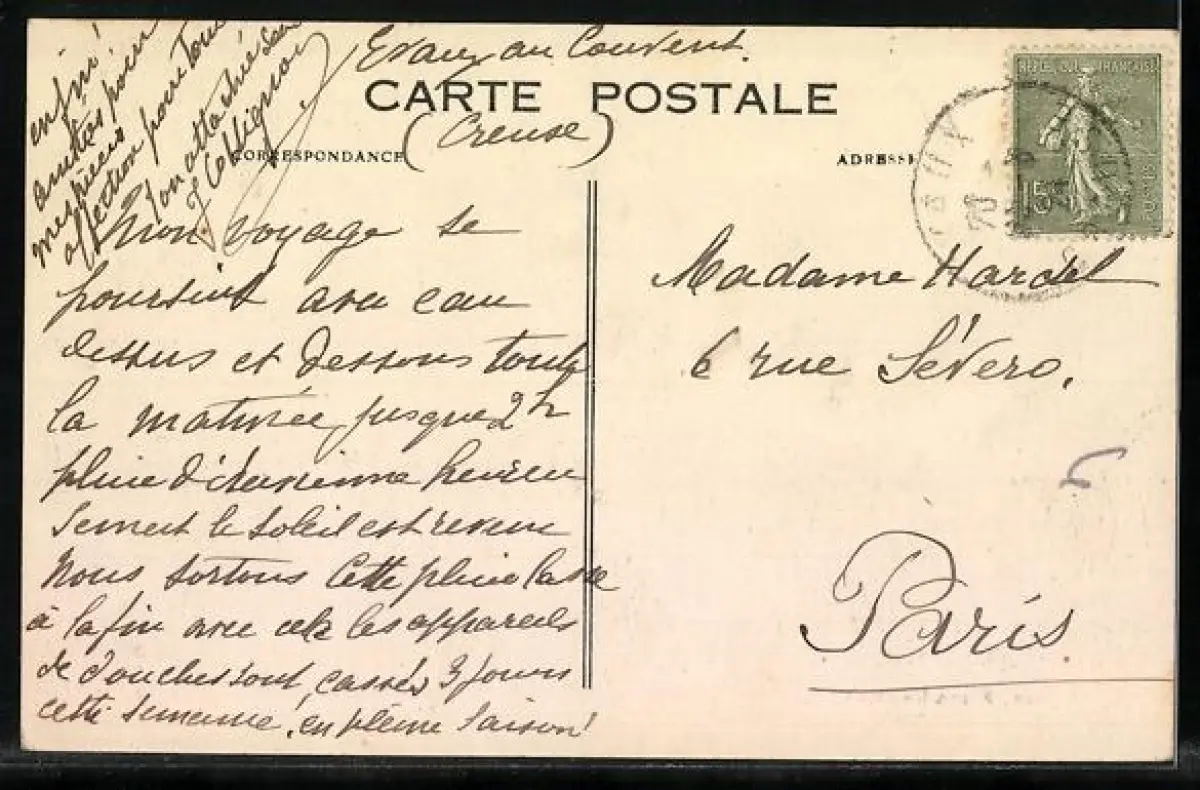 Evaux au Couvent.
CARTE POSTALE
(Creuse)
CORRESPONDANCE
ADRESSE
REPUBLIQUE FRANÇAISE
15
POSTES
EVAUX
Mon voyage se
poursuit avec eau
dessus et dessous toute
la matinée jusque 2h
pluie d'
heureu
sement le soleil est revenu
Nous sortons cette pluie lasse
à la fin avec cela les appareils
de douches sont cassés 3 jours
cette semaine, en pleine saison!
enfin!
amitiés pour
mes nièces
affection pour Tous
Ton attachée
Madame Hardel
6 rue Sévero,
Paris.